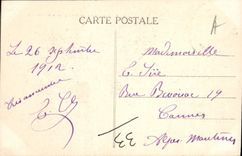 CARTE POSTALE
A
Le 26 septembre
1912
Mademoiselle
Rue Bivouac 19
Cannes
Alpes Maritimes